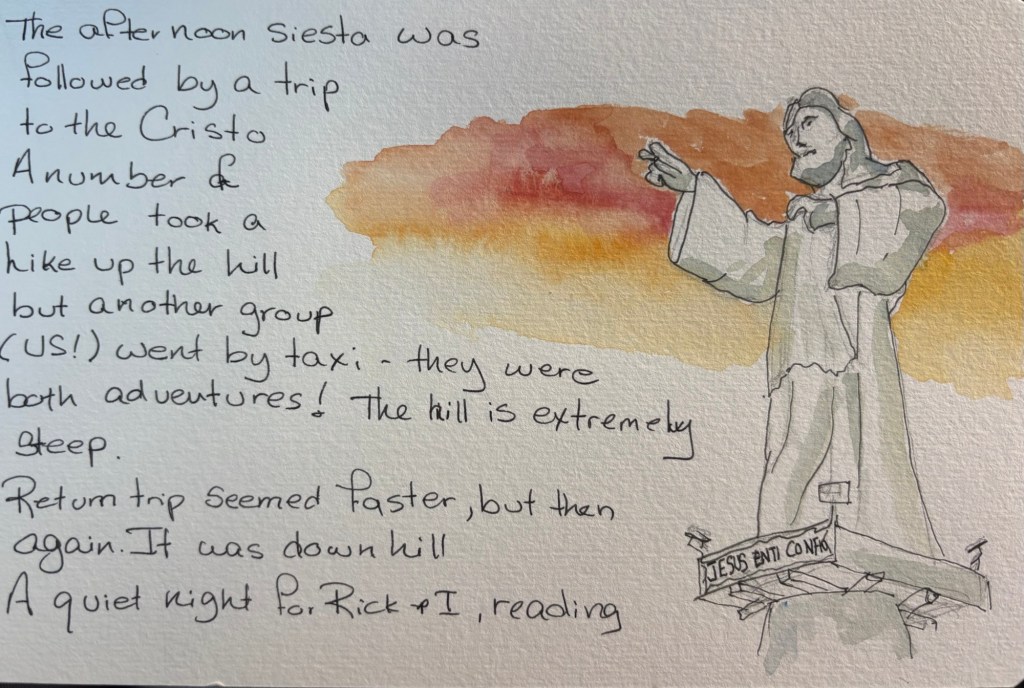 The afternoon siesta was
followed by a trip
to the Cristo
A number &
people took a
hike up the hill
but another group
(US!) went by taxi - they were
both adventures! The hill is extremely
steep.
Return trip seemed faster, but then
again. It was down hill
A quiet night for Rick & I, reading
JESUS ENTI CONFIO